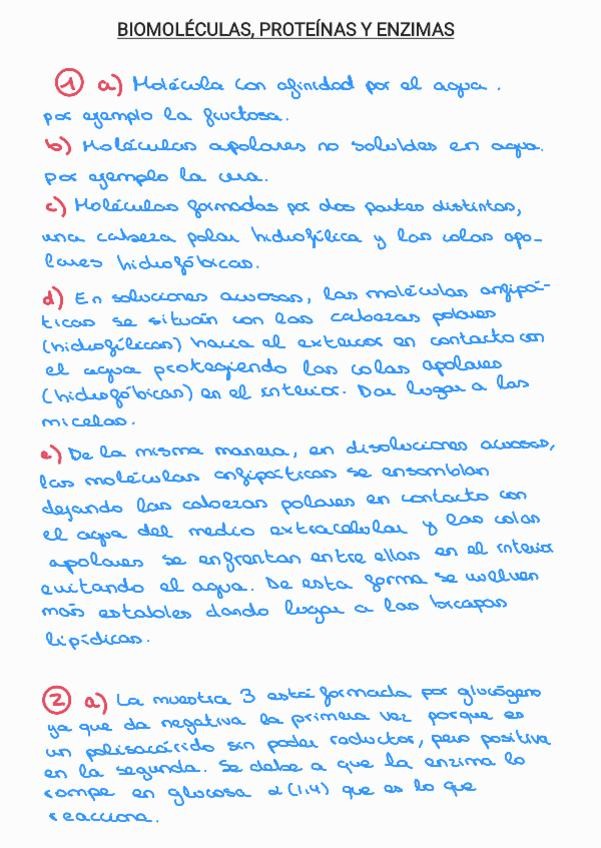 BIOMOLÉCULAS, PROTEÍNAS Y ENZIMAS
① a) Molécula con afinidad por el agua.
por ejemplo la fructosa.
b) Moléculas apolares no solubles en agua.
por ejemplo la cera.
c) Moléculas formadas por dos partes distintas,
una cabeza polar hidrofílica y las colas apo-
lares hidrofóbicas.
d) En soluciones acuosas, las moléculas anfipá-
ticas se sitúan con las cabezas polares
(hidrofílicas) hacia el exterior en contacto con
el agua protegiendo las colas apolares
(hidrofóbicas) en el interior. Dar lugar a las
micelas.
e) De la misma manera, en disoluciones acuosas,
las moléculas anfipáticas se ensamblan
dejando las cabezas polares en contacto con
el agua del medio extracelular y las colas
apolares se enfrentan entre ellas en el interior
evitando el agua. De esta forma se vuelven
más estables dando lugar a las bicapas
lipídicas.
② a) La muestra 3 está formada por glucógeno
ya que da negativa la primera vez porque es
un polisacárido sin poder reductor, pero positiva
en la segunda. Se debe a que la enzima lo
rompe en glucosa α(1,4) que es lo que
reacciona.